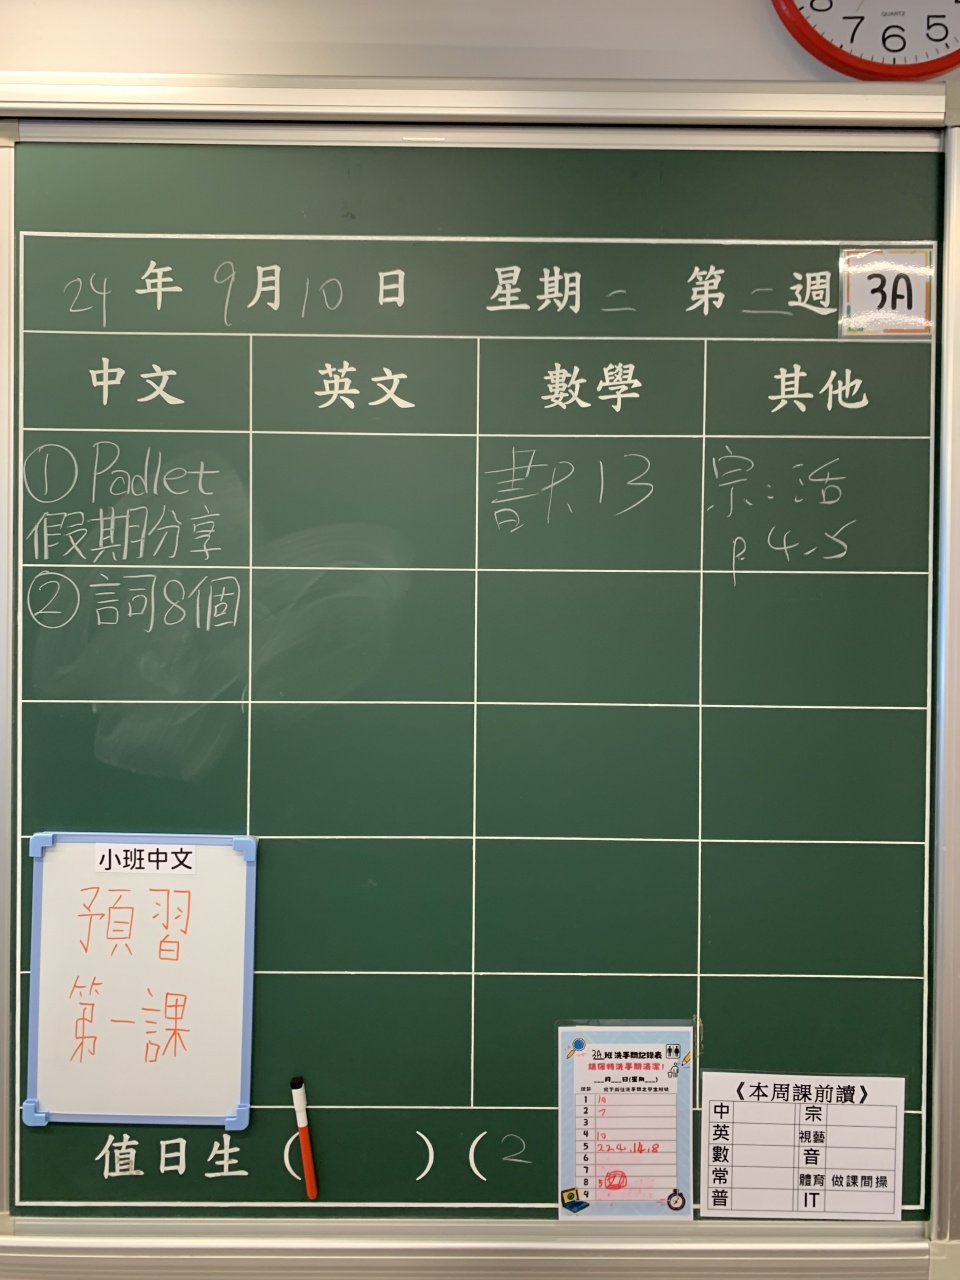 7 6 5
QUARTZ
24 年 9 月 10 日 星期 二 第 二 週 3A
中文 英文 數學 其他
① Padlet
假期分享
② 詞8個
書P.13
宗:活
p.4-5
小班中文
預習
第一課
值日生 ( ) ( 2
3A 班洗手間記錄表
請保持洗手間清潔!
___月___日(星期___)
1 10
2 7
3
4 10
5 22.4.14.8
6
7
8
9
《本周課前讀》
中 宗
英 視藝
數 音
常 體育 做課間操
普 IT